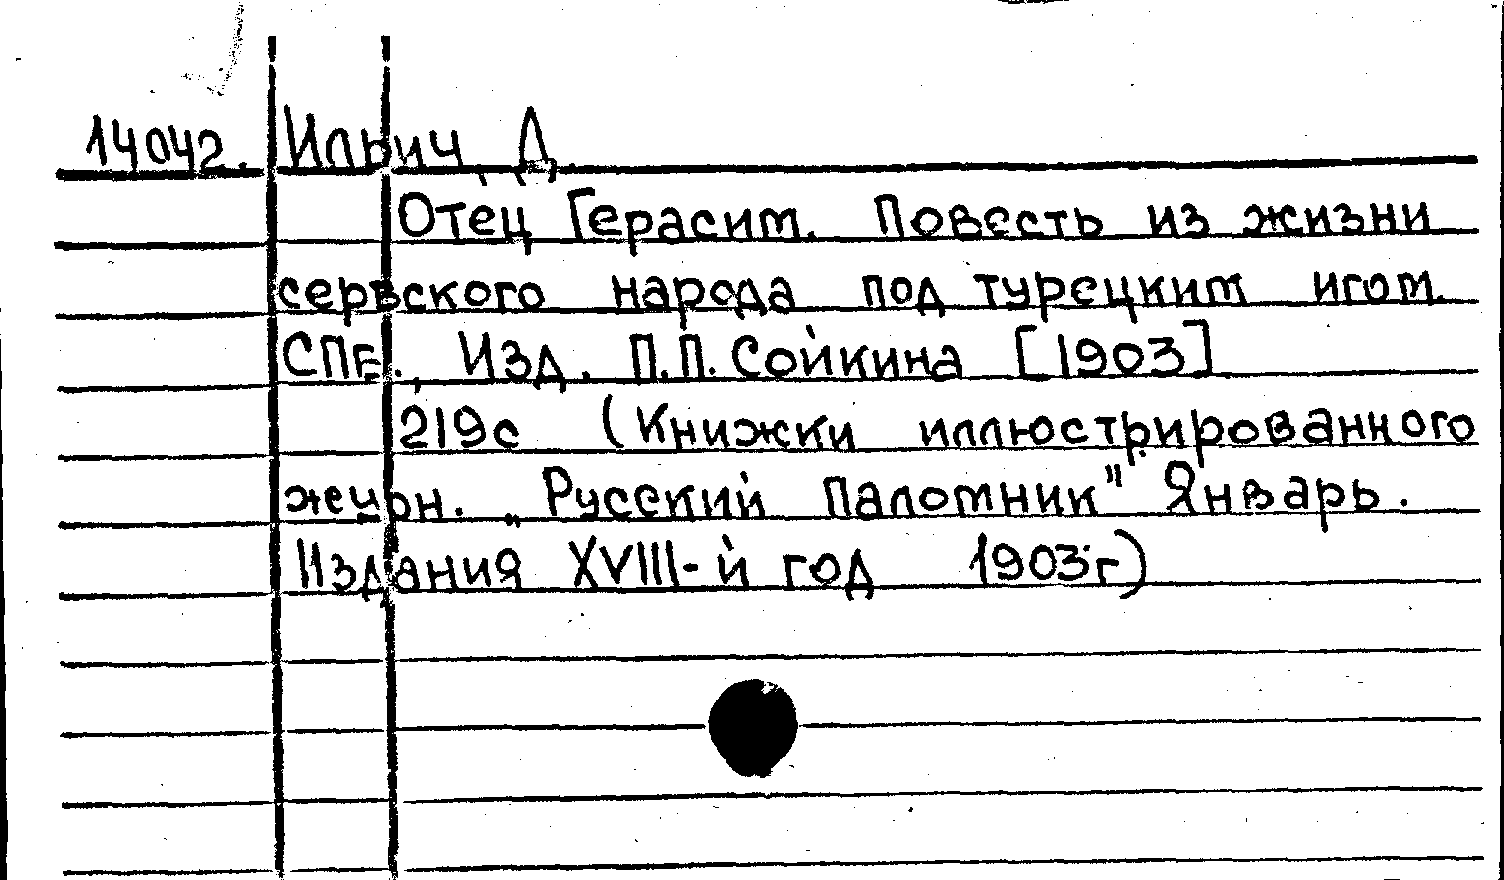 14042. Ильич, Д.
Отец Герасим. Повесть из жизни
сервского народа под турецким игом.
СПБ., Изд. П.П. Сойкина [1903]
219с (Книжки иллюстрированного
журн. „Русский паломник" Январь.
Издания XVIII-й год 1903г)